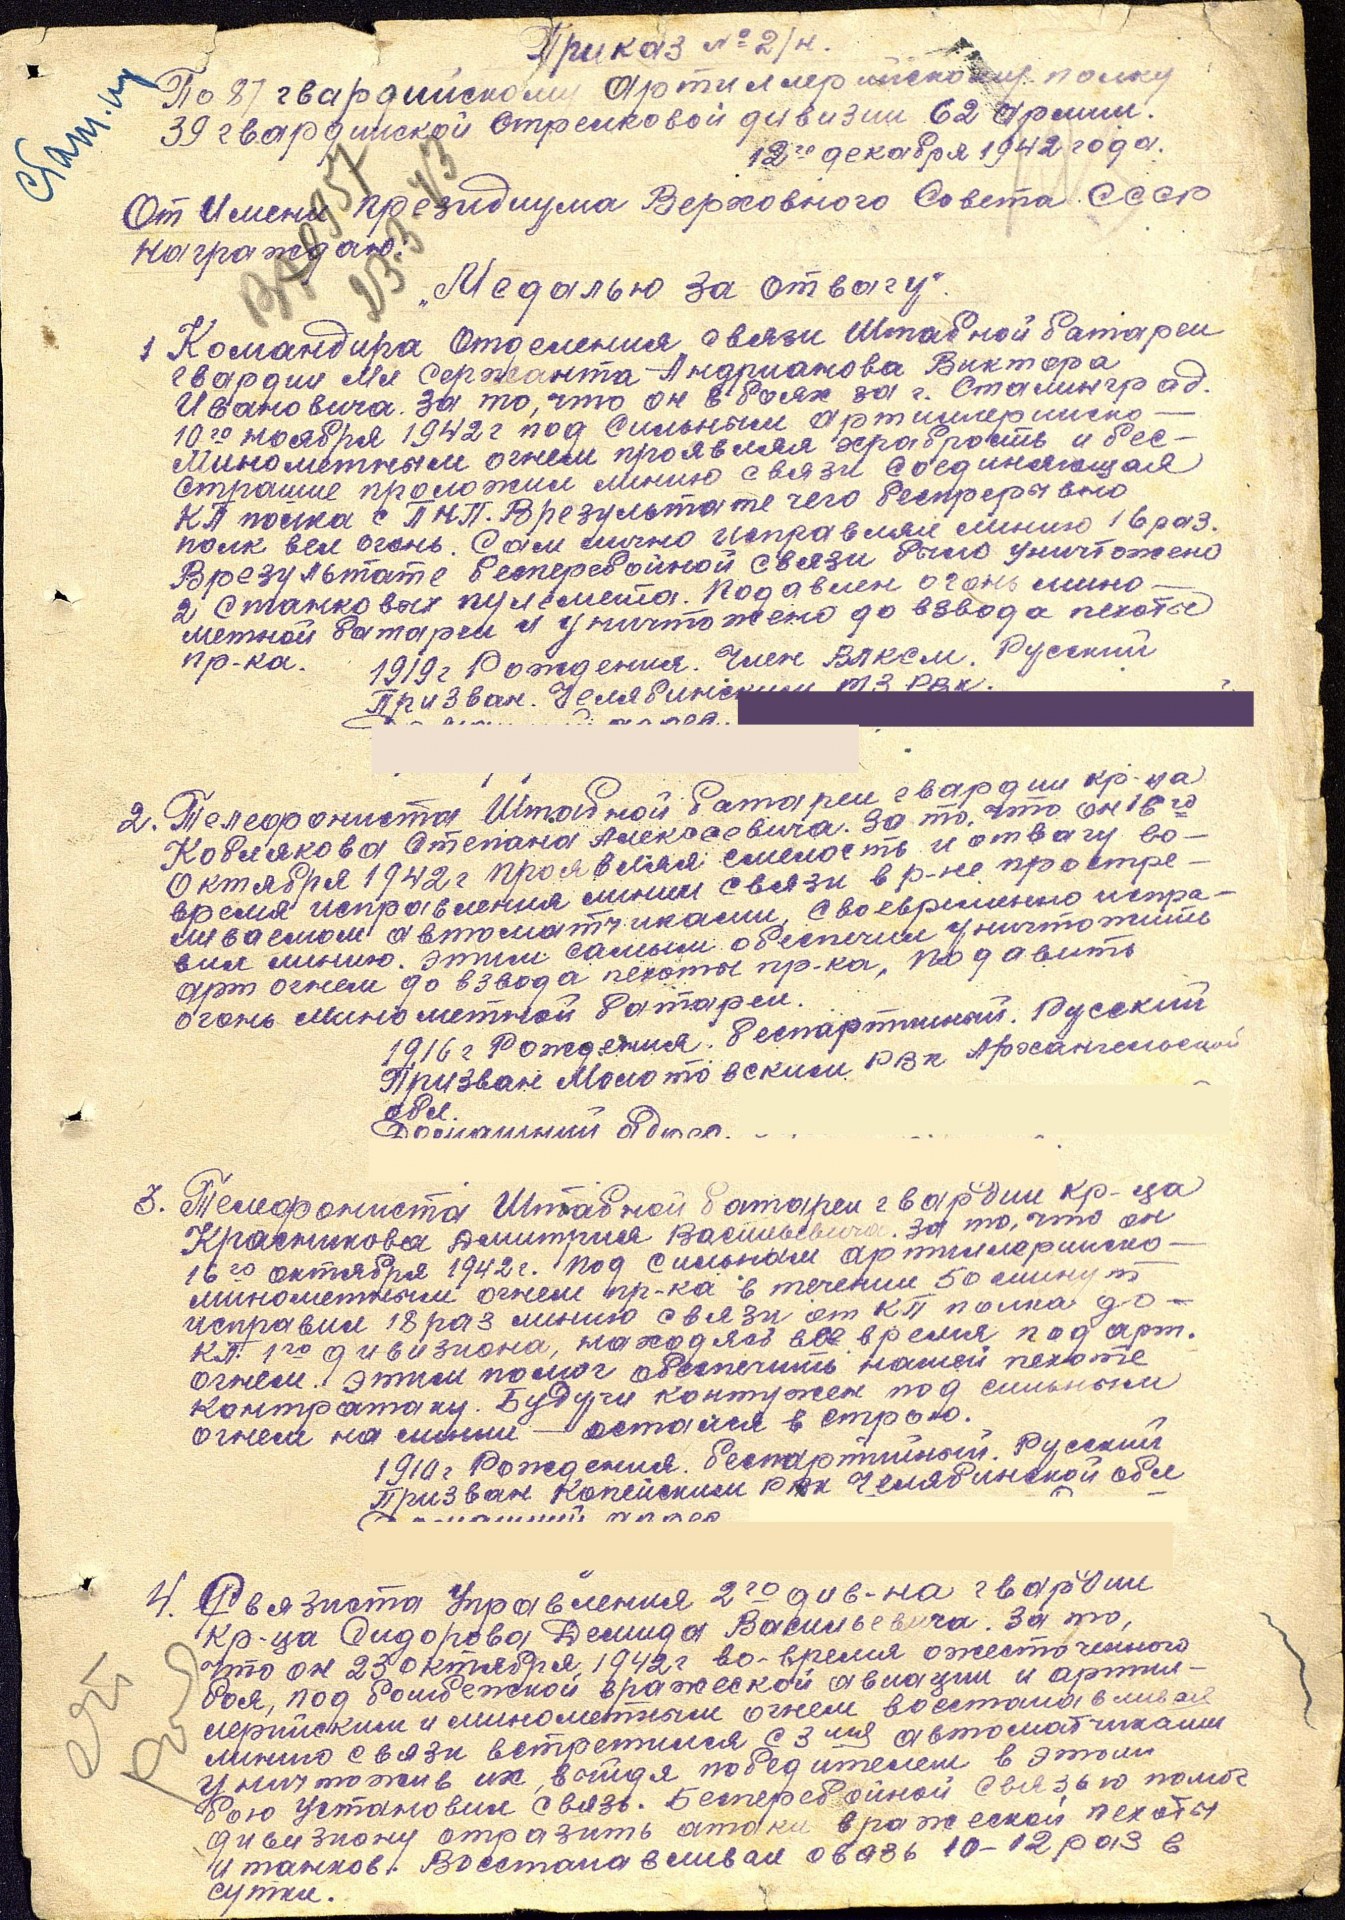 Приказ №2/н.
По 87 гвардийскому Артиллерийскому полку
39 гвардийской Стрелковой дивизии 62 Армии.
12го декабря 1942 года.
От Имени Президиума Верховного Совета СССР
Награждаю:
„Медалью за отвагу".
1 Командира Отделения связи Штабной батареи
гвардии Мл Сержанта Андрианова Виктора
Ивановича. За то, что он в боях за г. Сталинград.
10го ноября 1942г под Сильным артиллерийско-
Минометным огнем проявляя храбрость и бес-
страшие проложил линию связи Соединяющая
КП полка с ПНП. В результате чего беспрерывно
полк вел огонь. Сам лично исправлял линию 16 раз.
В результате бесперебойной связи было уничтожено
2 Станковых пулемета. Подавлен огонь мино-
метной батареи и уничтожено до взвода пехоты
пр-ка.
1919г Рождения. Член ВЛКСМ. Русский
Призван. Челябинским ТЗ РВК.
2. Телефониста Штабной батареи гвардии кр-ца
Коблякова Степана Алексеевича. За то, что он 16го
Октября 1942г проявляя смелость и отвагу во-
время исправления линии связи в р-не простре-
ливаемом автоматчиками, своевременно испра-
вил линию. Этим самым обеспечил уничтожить
арт огнем до взвода пехоты пр-ка, подавить
огонь минометной батареи.
1916г Рождения. беспартийный. Русский
Призван Молотовским РВК Архангельской
обл.
Домашний адрес.
3. Телефониста Штабной батареи гвардии кр-ца
Красикова Дмитрия Васильевича. За то, что он
16го октября 1942г. под сильным артиллерийско-
минометным огнем пр-ка в течении 50 минут
исправил 18 раз линию связи от КП полка до-
КП. 1го дивизиона, находясь все время под арт.
огнем. Этим помог обеспечить нашей пехоте
контратаку. Будучи контужен под сильным
огнем на линии — остался в строю.
1910г Рождения. беспартийный. Русский
Призван Копейским РВК Челябинской обл
Домашний адрес
4. Связиста Управления 2го див-на гвардии
кр-ца Сидорова Демида Васильевича. За то,
что он 23 октября 1942г во-время ожесточенного
боя, под бомбежкой вражеской авиации и артил-
лерийским и минометным огнем восстанавливая
линию связи встретился с 3мя автоматчиками
уничтожив их, выйдя победителем в этом
бою установил связь. Бесперебойной связью помог
дивизиону отразить атаки вражеской пехоты
и танков. Восстанавливал связь 10-12 раз в
сутки.